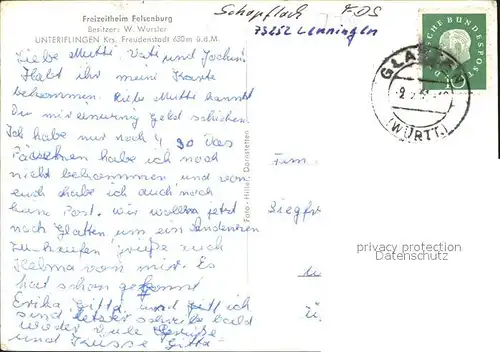 Freizeitheim Felsenburg
Besitzer: W. Wurster
UNTERIFLINGEN Krs. Freudenstadt 630m ü.d.M.
Schopfloch FDS
73252 Lenningen
DEUTSCHE BUNDESPOST
GLATTEN
(WÜRTT.)
Liebe Mutti, Vati und Jochen!
Habt ihr meine Karte
bekommen. Liebe Mutti kannst
Du mir einwenig Geld schicken.
Ich habe nur noch 4,30 Das
Päckchen habe ich noch
nicht bekommen und von
euch habe ich auch noch
keine Post. Wir wollen jetzt
nach Glatten um ein Andenken
zu kaufen grüße auch
Helma von mir. Es
hat schon
Erika, Gitta und ich
sind schreib bald
wieder viele Grüße
und Küsse Gitta
Foto-Hiller, Dornstetten
Fam.
Siegfr
privacy protection
Datenschutz